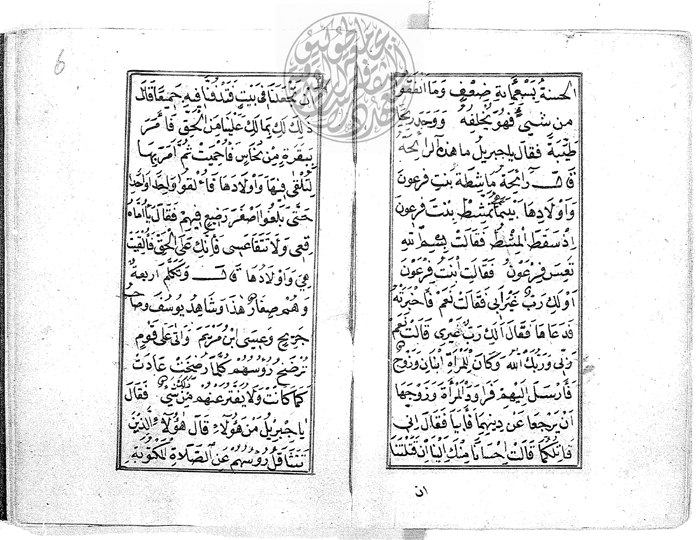 الحسنة بسبعماية ضعف وما انفقوا
من شيئ فهو يخلفه ووجد ريحا
طيبة فقال ياجبريل ما هذه الرائحة
قال رائحة ماشطة بنت فرعون
واولادها بينما تمشط بنت فرعون
اذ سقط المشط فقالت بسم الله
تعس فرعون فقالت ابنت فرعون
اولك رب غير ابي فقالت نعم فاخبرته
فدعاها فقال الك رب غيري قالت نعم
ربي وربك الله وكان للمراة ابنان وزوج
فارسل اليهم فراود المراة وزوجها
ان يرجعا عن دينهما فابيا فقال اني
قاتلكما قالت احسانا منك الينا ان قتلتنا
ان
6
ان تجعلنا في بيت فتدفنا فيه جميعا قال
ذلك لك بما لك علينا من الحق فامر
ببقرة من نحاس فاحميت ثم امر بها
لتلقى فيها واولادها فالقوا واحدا واحدا
حتى بلغوا اصغر رضيع فيهم فقال يا اماه
قعي ولا تتقاعسي فانك على الحق فالقيت
هي واولادها قال وتكلم اربعة
وهم صغار هذا وشاهد يوسف وصاحب
جريج وعيسى ابن مريم واتى على قوم
ترضخ روسهم كلما رضخت عادت
كما كانت ولا يفتر عنهم من ذلك شي فقال
ياجبريل من هولاء قال هولاء الذين
تتثاقل روسهم عن الصلاة المكتوبة